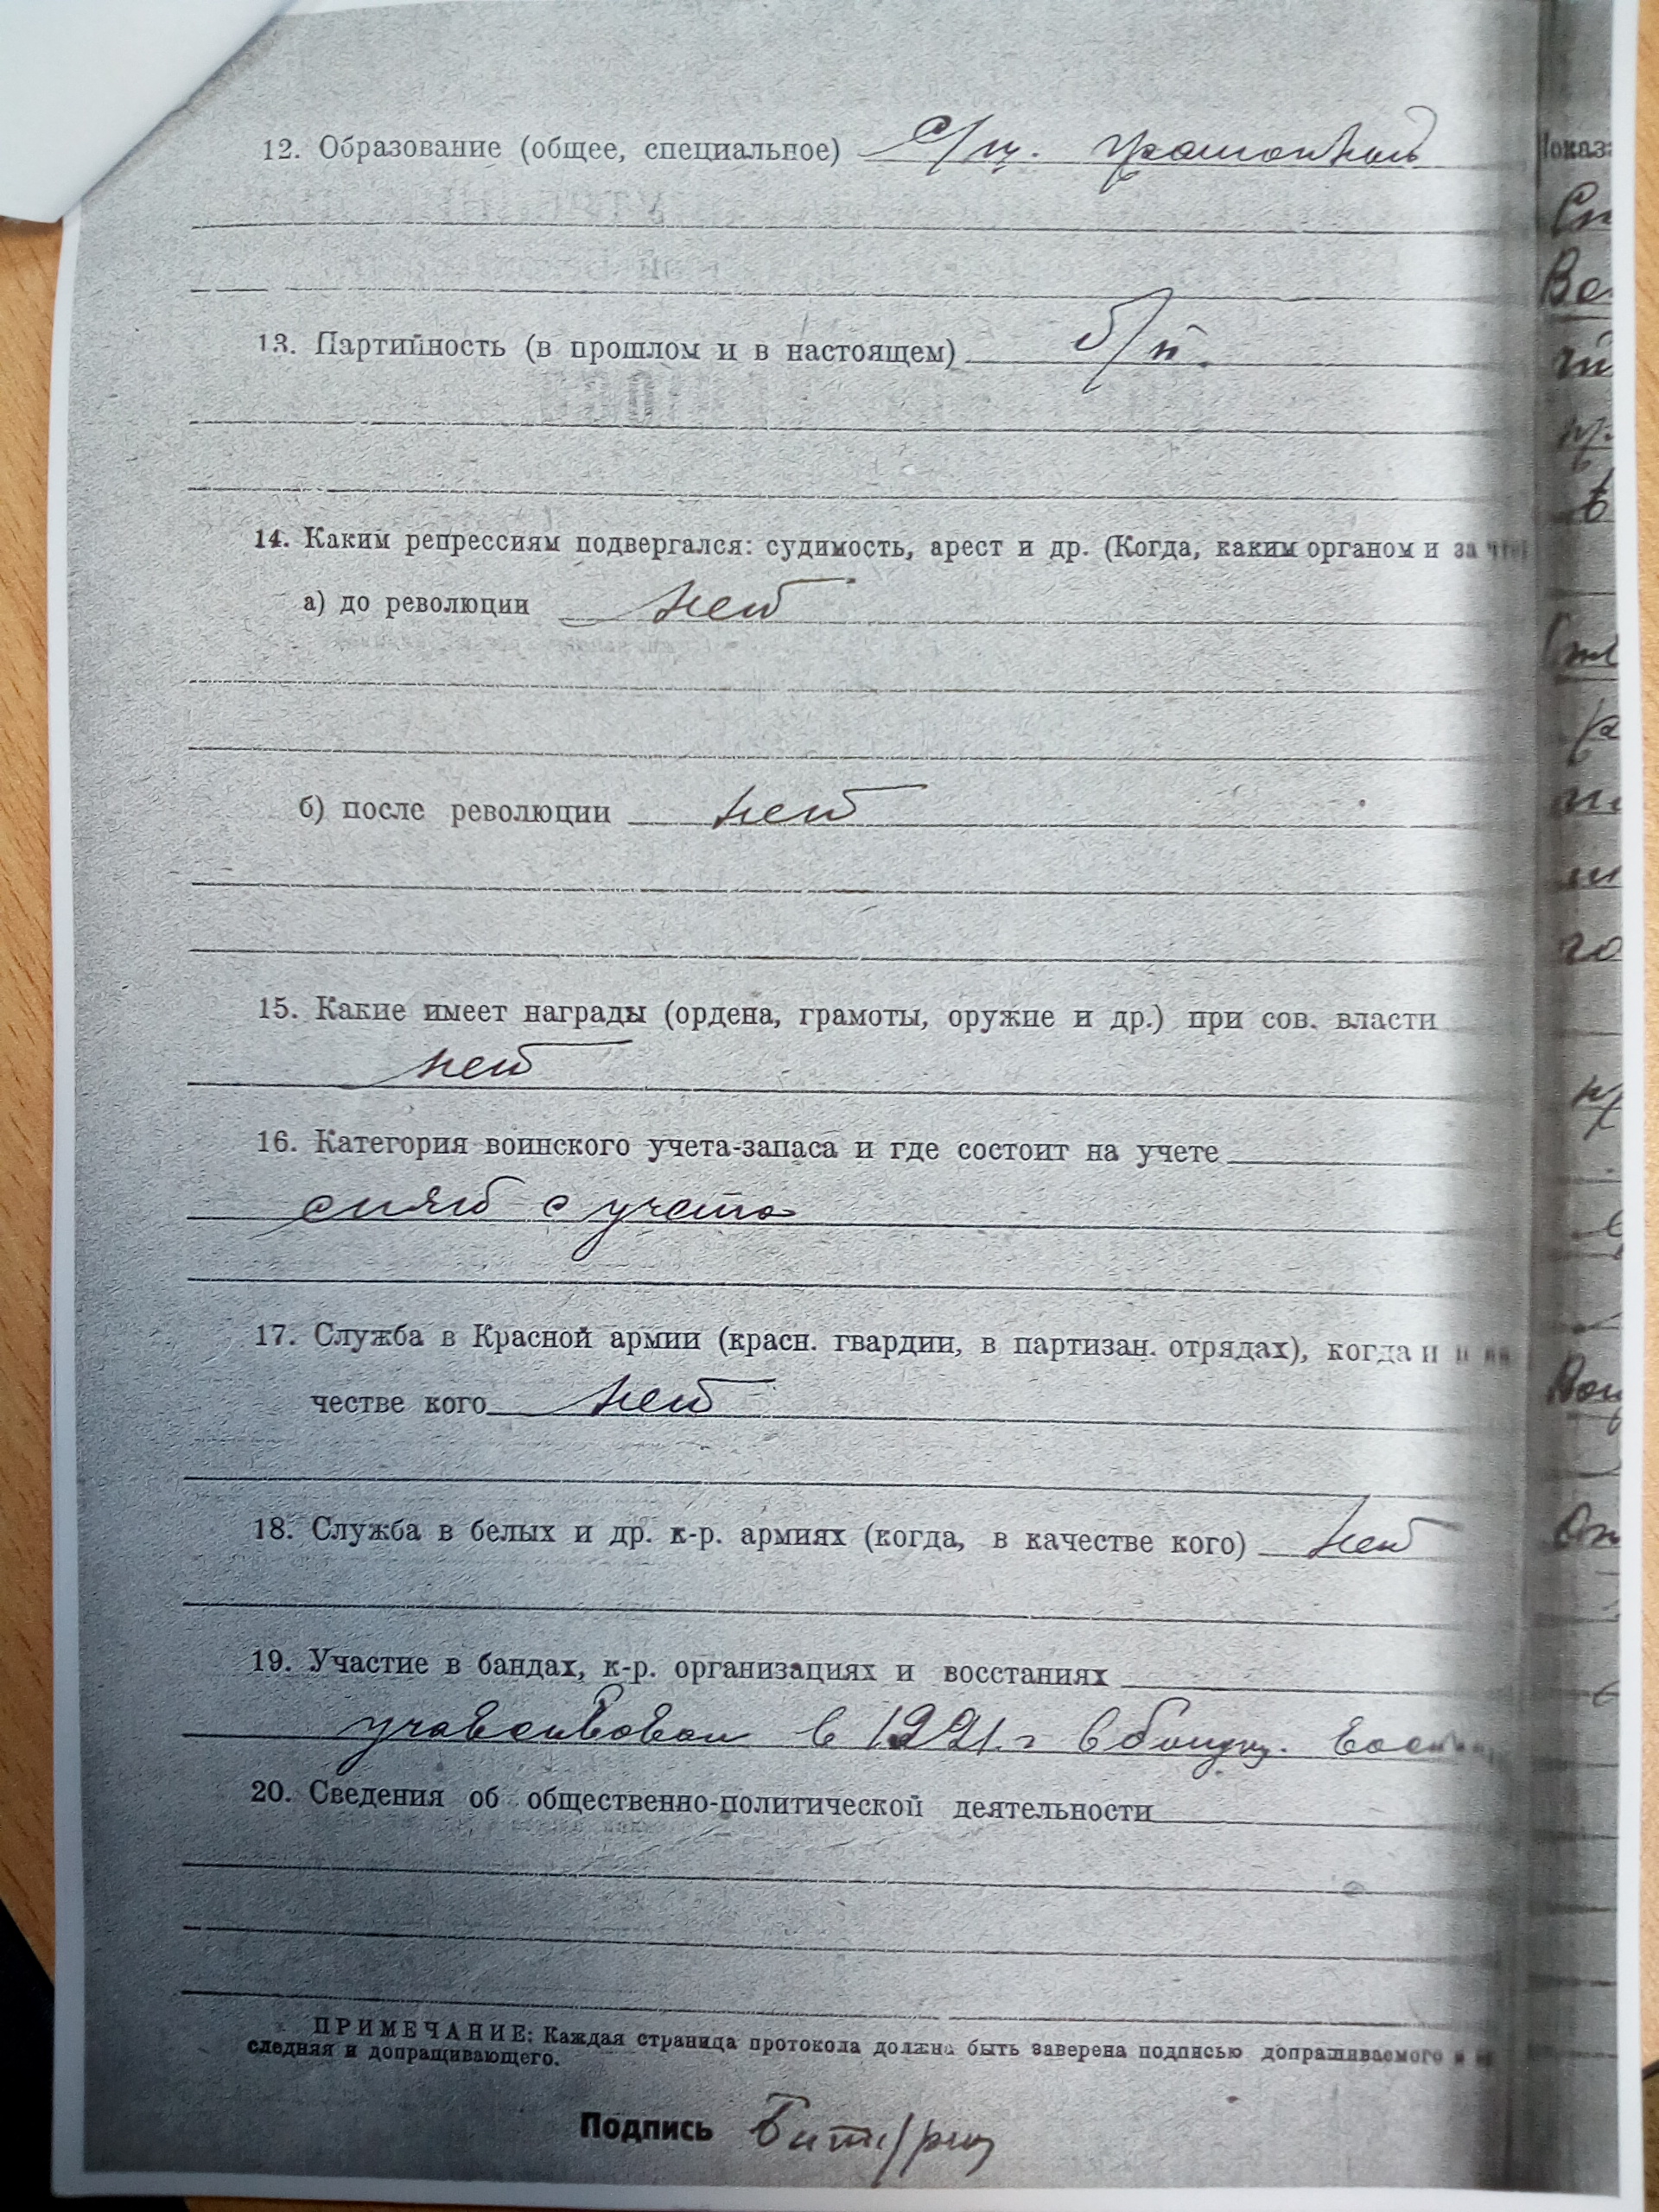 12. Образование (общее, специальное)
13. Партийность (в прошлом и в настоящем) б/п.
14. Каким репрессиям подвергался: судимость, арест и др. (Когда, каким органом и за что)
а) до революции нет
б) после революции нет
15. Какие имеет награды (ордена, грамоты, оружие и др.) при сов. власти
нет
16. Категория воинского учета-запаса и где состоит на учете
снят с учета
17. Служба в Красной армии (красн. гвардии, в партизан. отрядах), когда и
честве кого нет
18. Служба в белых и др. к-р. армиях (когда, в качестве кого) нет
19. Участие в бандах, к-р. организациях и восстаниях
участвовал в 1921 г в
20. Сведения об общественно-политической деятельности
ПРИМЕЧАНИЕ: Каждая страница протокола должна быть заверена подписью допрашиваемого и
следняя и допращивающего.
Подпись